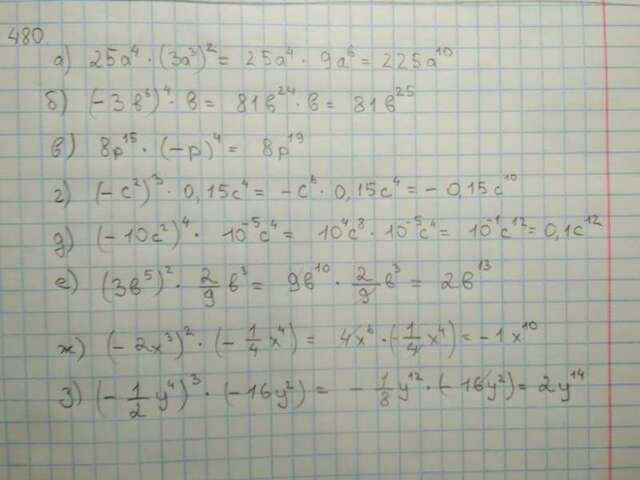 480.
а) 25a⁴ · (3a³)² = 25a⁴ · 9a⁶ = 225a¹⁰
б) (-3в⁶)⁴ · в = 81в²⁴ · в = 81в²⁵
в) 8p¹⁵ · (-p)⁴ = 8p¹⁹
г) (-c²)³ · 0,15c⁴ = -c⁶ · 0,15c⁴ = -0,15c¹⁰
д) (-10c²)⁴ · 10⁻⁵c⁴ = 10⁴c⁸ · 10⁻⁵c⁴ = 10⁻¹c¹² = 0,1c¹²
е) (3в⁵)² · 2/9 в³ = 9в¹⁰ · 2/9 в³ = 2в¹³
ж) (-2x³)² · (-1/4 x⁴) = 4x⁶ · (-1/4 x⁴) = -1x¹⁰
з) (-1/2 y⁴)³ · (-16y²) = -1/8 y¹² · (-16y²) = 2y¹⁴